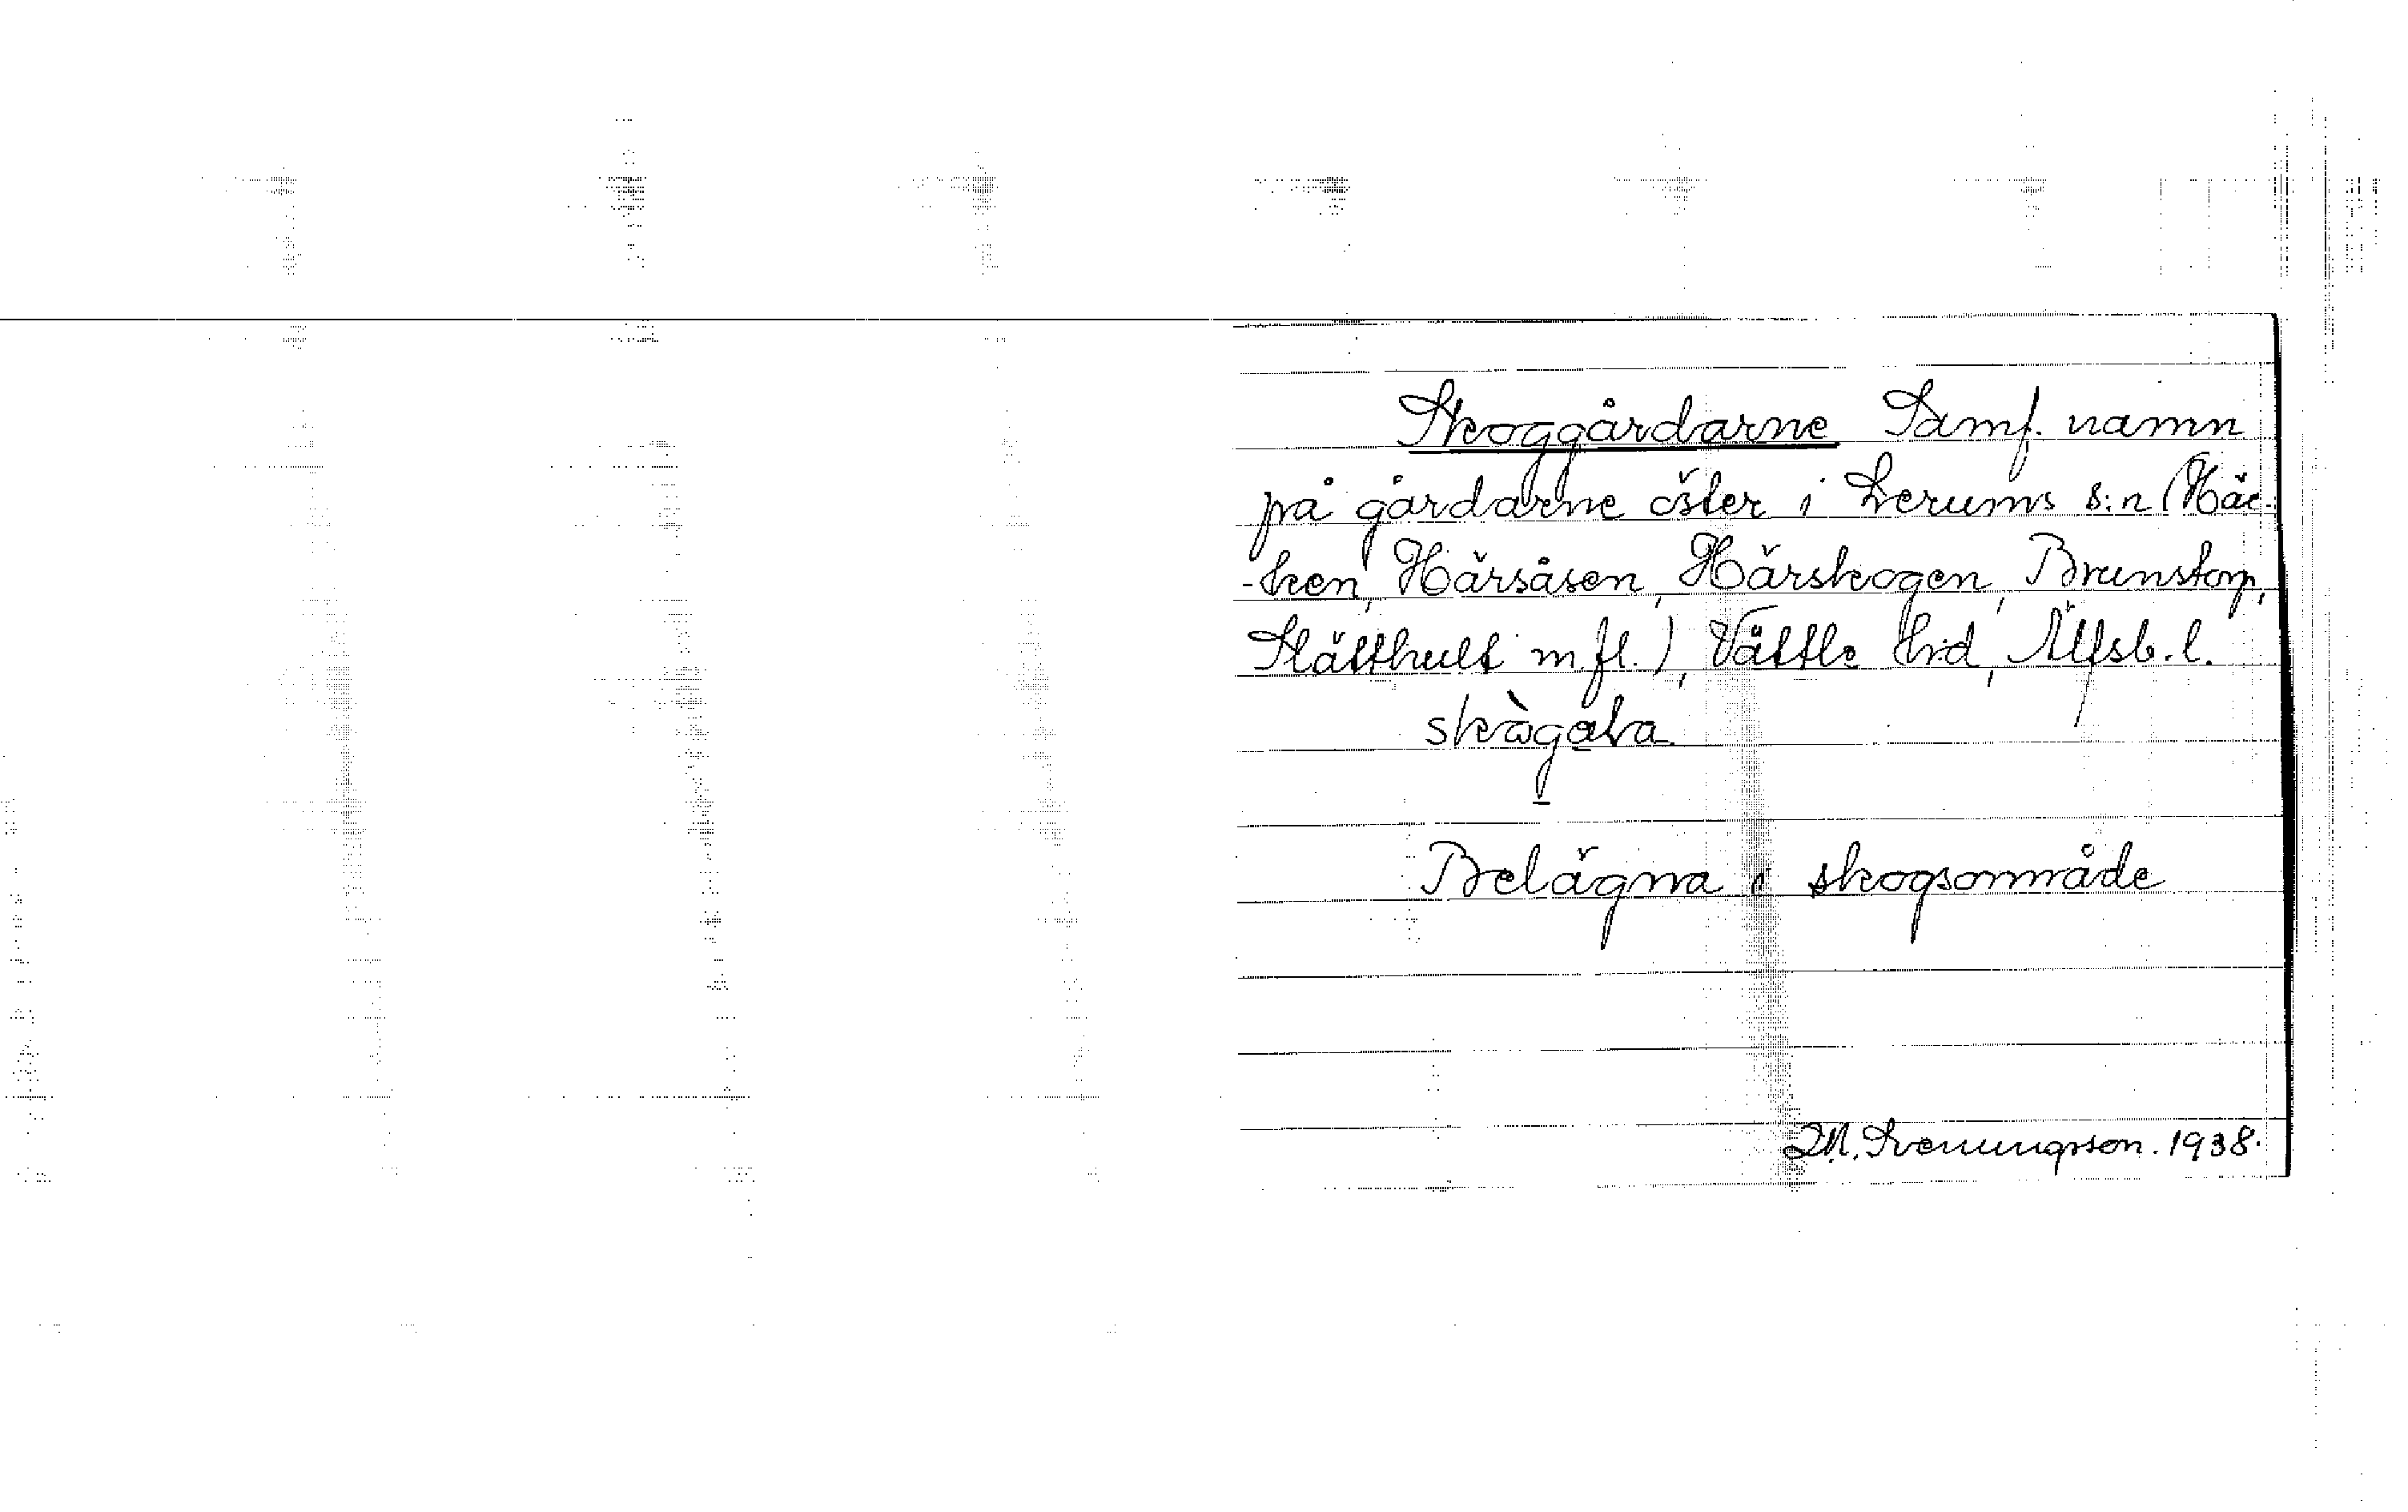 Skoggårdarne Samf. namn
på gårdarne öster i Lerums s:n (Häc-
-ken, Härsåsen, Härskogen, Brunstorp,
Slätthult m.fl.), Vättle hd, Älfsb. l.
Belägna i skogsområde
M. Svenungsson. 1938.